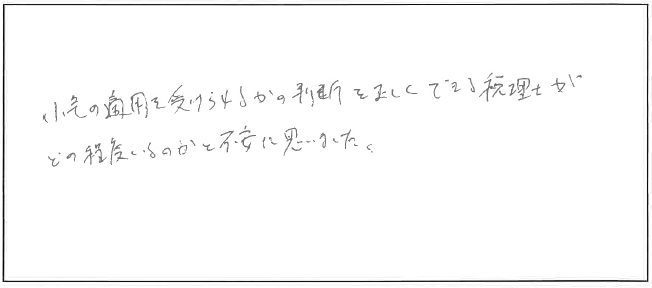 小宅の適用を受けられるかの判断を正しくできる税理士が
どの程度いるのかと不安に思いました。